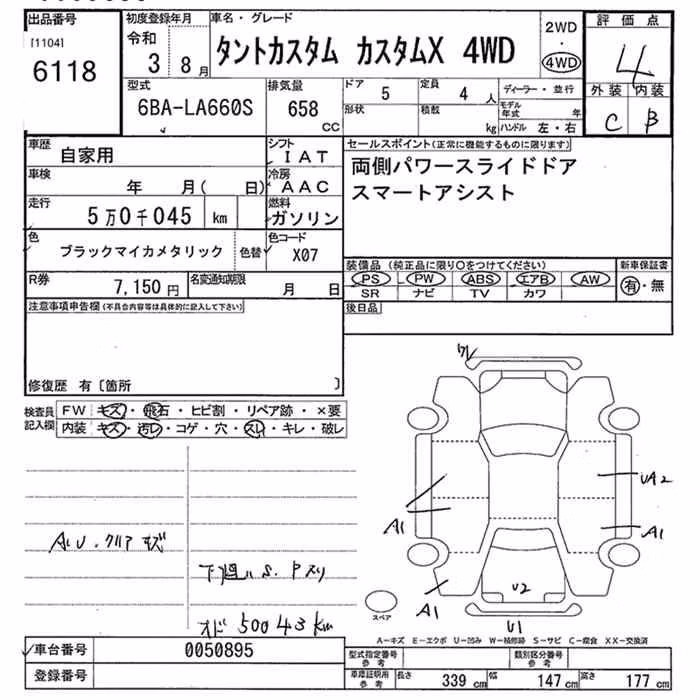 出品番号
[1104]
6118
初度登録年月
令和
3 8月
車名・グレード
タントカスタム カスタムX 4WD
2WD
・
4WD
評価点
4
外装 内装
C B
型式
6BA-LA660S
排気量
658
cc
ドア 5
定員 4 人
形状
積載 kg
ディーラー・並行
モデル年式 年
ハンドル 左・右
車歴
自家用
シフト
IAT
車検
年 月( 日)
冷房
AAC
走行
5万0千045 km
燃料
ガソリン
色
ブラックマイカメタリック
色替
色コード
X07
R券
7,150円
名変通知期限
月 日
セールスポイント(正常に機能するものに限ります)
両側パワースライドドア
スマートアシスト
装備品(純正品に限り○をつけてください)
新車保証書
PS PW ABS エアB AW
有・無
SR ナビ TV カワ
後日品
注意事項申告欄(不具合内容等は具体的に記入して下さい)
修復歴 有〔箇所 〕
検査員
記入欄
FW キズ・飛石・ヒビ割・リペア跡・×要
内装 キズ・汚レ・コゲ・穴・スレ・キレ・破レ
AW・クリアキズ
下廻りS.Pスリ
オド50043km
W
UA2
A1
A1
A1
U2
U1
スペア
A-キズ E-エクボ U-凹み W-補修跡 S-サビ C-腐食 XX-交換済
車台番号
0050895
登録番号
型式指定番号
参考
類別区分番号
参考
車庫証明用
参考
長さ 339 cm
幅 147 cm
高さ 177 cm